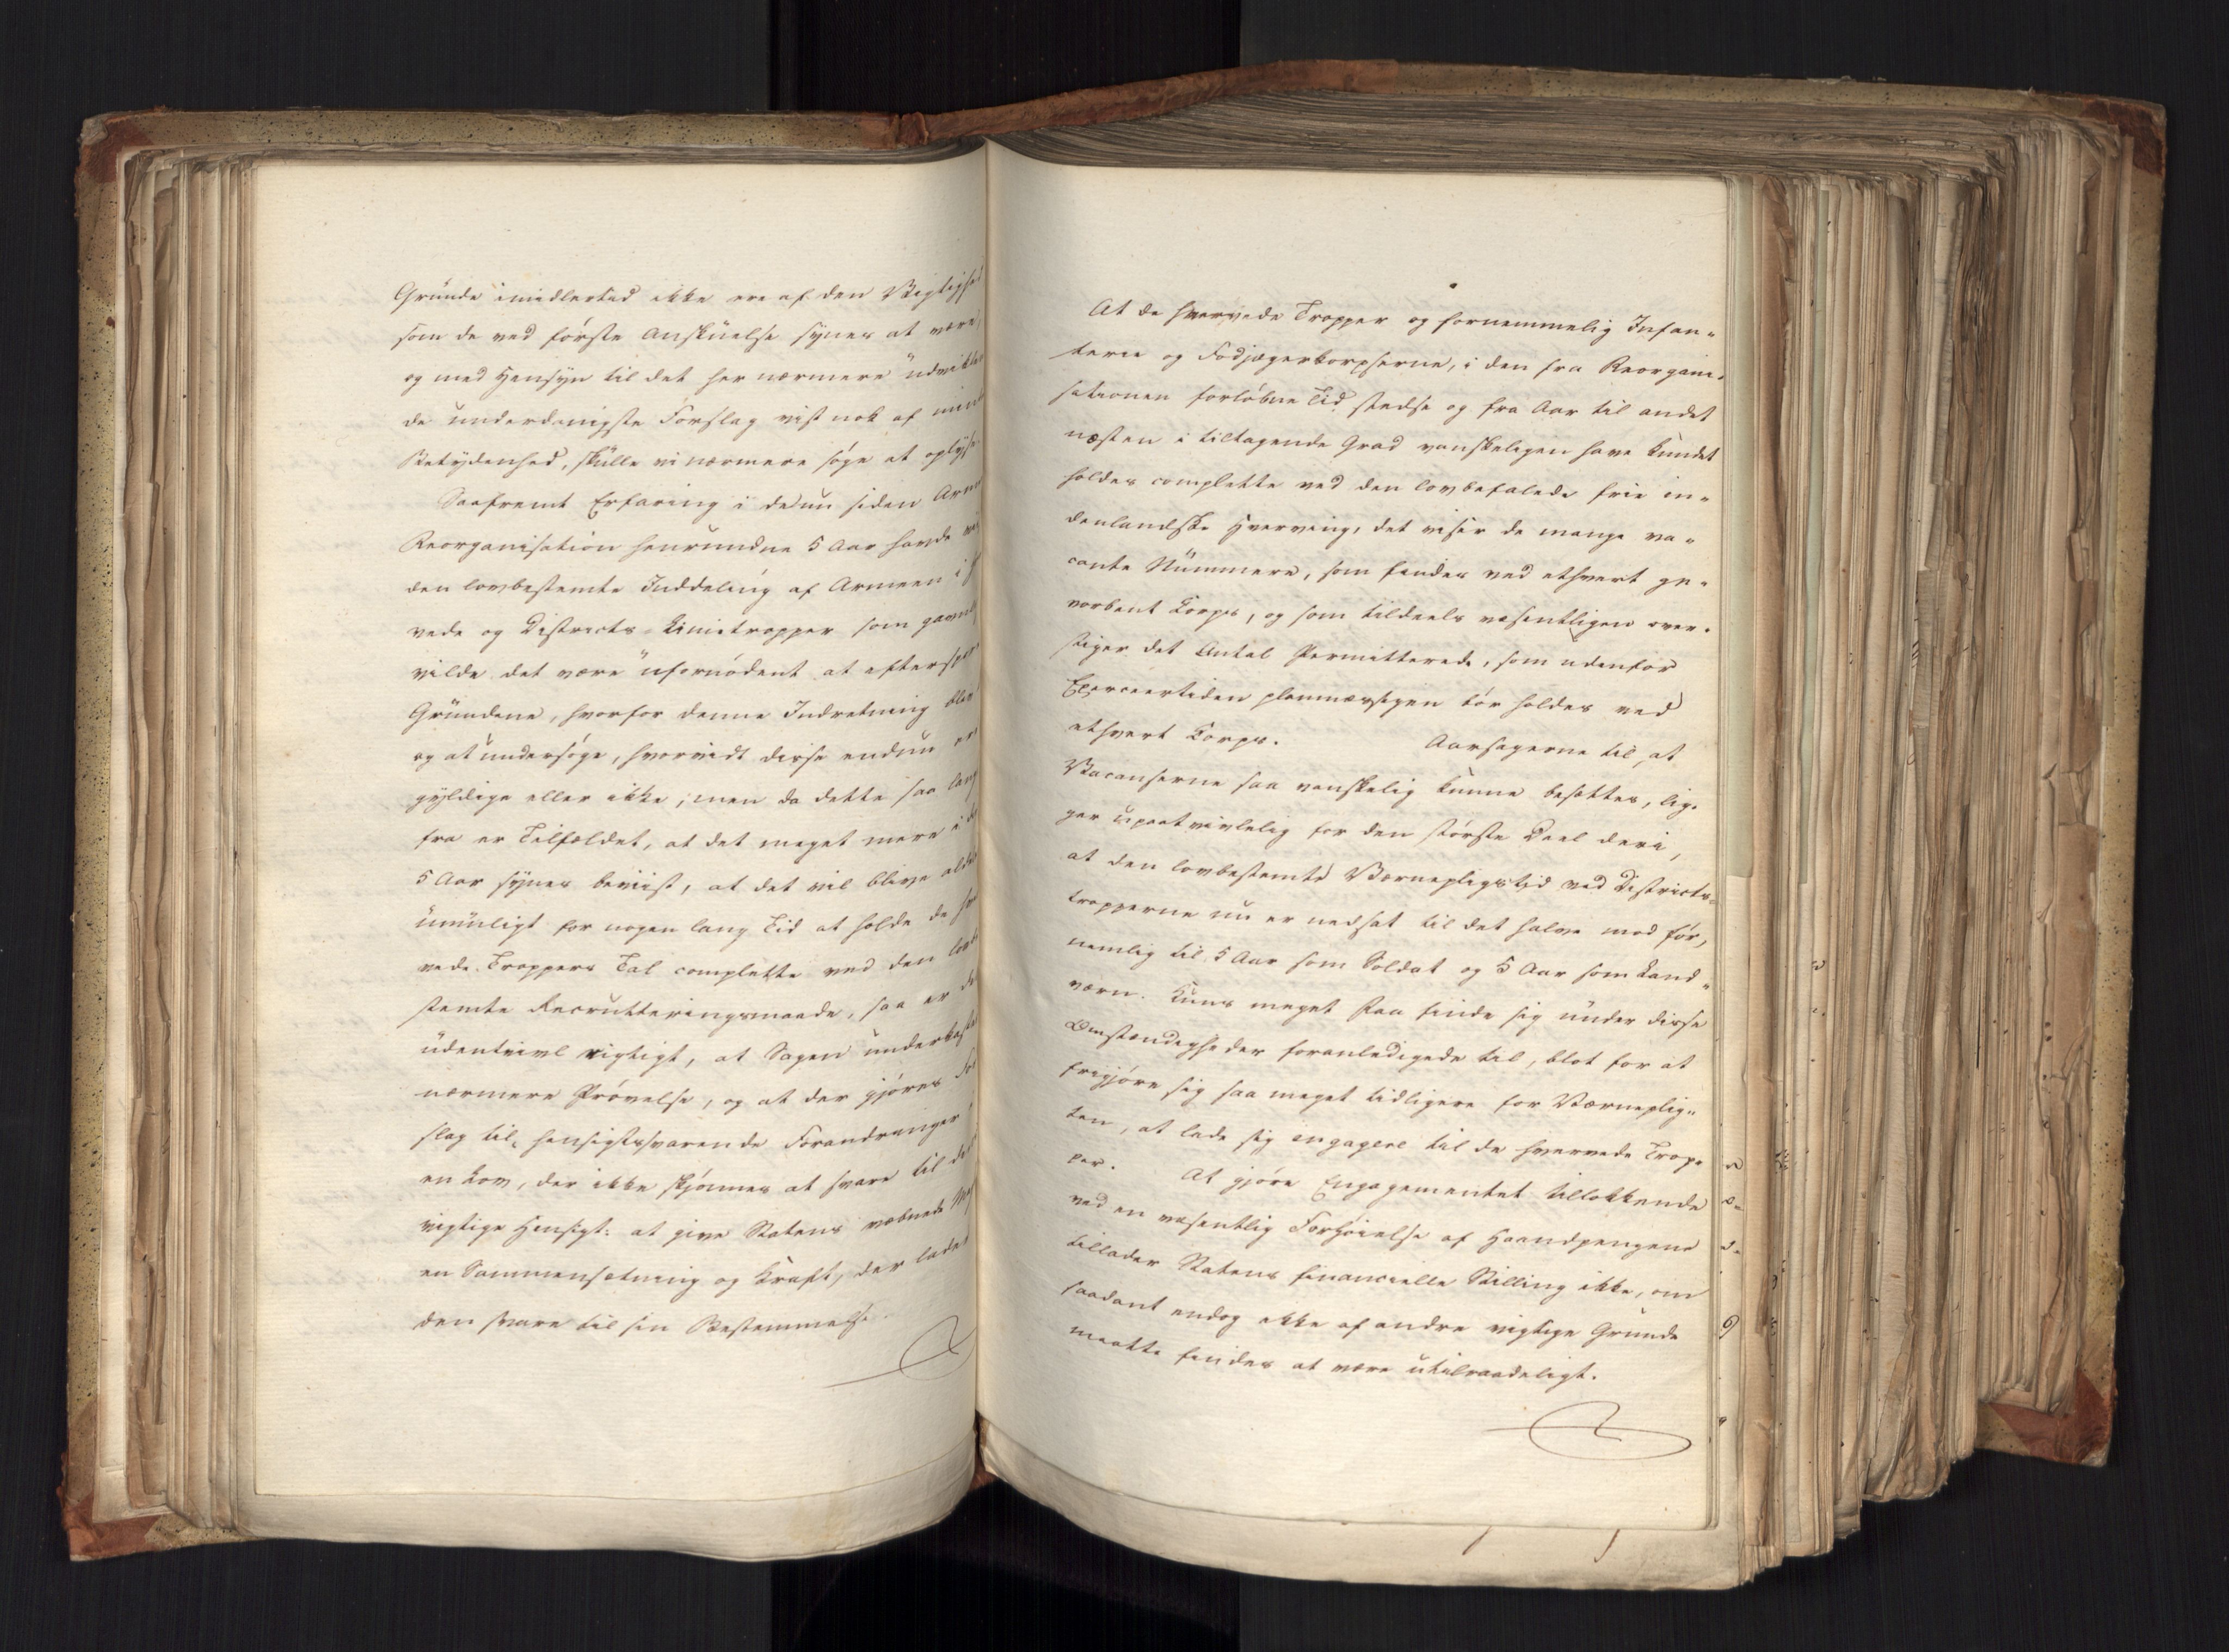 Grunde imidlertid ikke ere af den Vigtighed
som de ved første Anskuelse synes at være,
og med Hensyn til det her nærmere udvikle
de underdanigste Forslag vist nok af mind
Betydenhed, skulle vi nærmere søge at oplyse
Saafremt Erfaring i de nu siden Arme
Reorganisation henrundne 5 Aar havde vi
den lovbestemte Inddeling af Armeen i h
vede og Districts-Linietropper som gavnl
vilde det være ufornødent at eftersp
Grundene, hvorfor denne Indretning blev
og at undersøge, hvorvidt disse endnu er
gyldige eller ikke; men da dette saa lang
fra er Tilfældet, at det meget mere i d
5 Aar synes beviist, at det vil blive alde
umuligt for nogen lang Tid at holde de h
vede Troppers Tal complette ved den lovb
stemte Recrutteringsmaade, saa er d
udentvivl vigtigt, at Sagen underkast
nærmere Prøvelse, og at der gjøres Fo
slag til hensigtssvarende Forandringer i
en Lov, der ikke skjønnes at svare til d
vigtige Hensigt: at give Statens væbnede M
en Sammensætning og Kraft, der lade
den svare til sin Bestemmelse.
At de hvervede Tropper og fornemmelig Infan-
terie og Fodjægerkorpserne, i den fra Reorgani-
sationen forløbne Tid stedse og fra Aar til andet
næsten i tiltagende Grad vanskeligen have kundet
holdes complette ved den lovbefalede frie in-
denlandske Hverving, det viser de mange va-
cante Nummere, som findes ved ethvert ge-
vorbent Corps, og som tildeels væsentligen over-
stiger det Antal Permitterede, som udenfor
Exerceertiden planmæssigen bør holdes ved
ethvert Corps. Aarsagerne til, at
Vacanserne saa vanskelig kunne besættes, lig-
ger upaatvivlelig for den største Deel deri,
at den lovbestemte Værnepligtstid ved Districts-
tropperne nu er nedsat til det halve mod før,
nemlig til 5 Aar som Soldat og 5 Aar som Land-
værn. Kuns meget faa finde sig under disse
Omstændigheder foranledigede til, blot for at
frigjøre sig saa meget tidligere for Værneplig-
ten, at lade sig engagere til de hvervede Trop-
per. At gjøre Engagementet tillokkende
ved en væsentlig Forhøielse af Haandpengene
tillader Statens financielle Stilling ikke, om
saadant endog ikke af andre vigtige Grunde
maatte findes at være utilraadeligt.